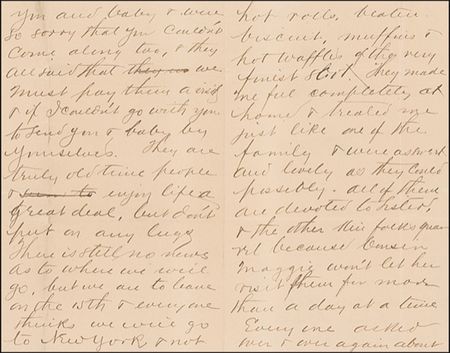 you and baby & were
so sorry that you couldn't
come along too, & they
all said that they we
must pay them a visit
& if I couldn't go with you
to send you & baby by
yourselves. They are
truly old time people
& seem to enjoy life a
great deal, but don't
put on any lugs
There is still no news
as to where we will
go, but we are to leave
on the 15th & everyone
thinks we will go
to New York & not
hot rolls, beaten
biscuit, muffins &
hot waffles of the very
finest sort. They made
me feel completely at
home & treated me
just like one of the
family & were as sweet
and lovely as they could
possibly. All of them
are devoted to
& the other
because Cousin
Maggie won't let her
visit them for more
than a day at a time
Everyone asked
over & over again about